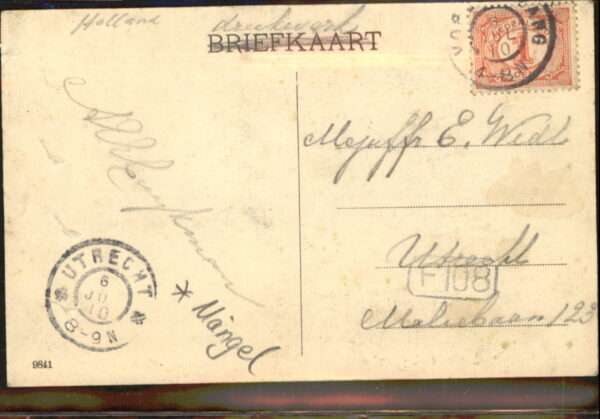 Holland
drukwerk
BRIEFKAART
Mejuffr. E. Wedt
Utrecht
F108
Maliebaan 123
UTRECHT
6
JU
10
8-9N
* Nàngel
9841